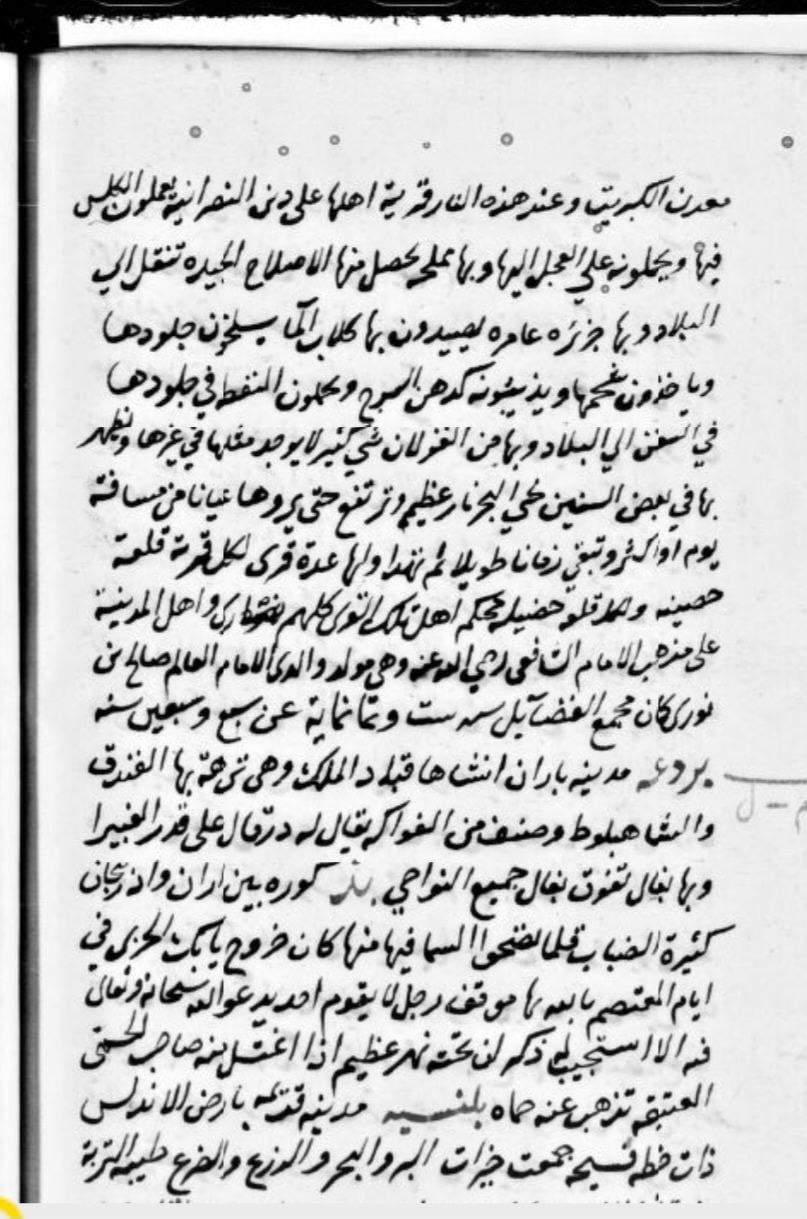 معدن الكبريت وعند هذه النار قرية اهلها على دين النصرانية يعملون الكلس
فيها ويحملونه علي العجل اليها وبها ملحه يحصل منها الاملاح الجيده تنقل الي
البلاد وبها جزيره عامره يصيدون بها كلاب الما يسلخون جلودها
وياخذون شحمها ويذيبونه كدهن السرج ويحملون النفط في جلودها
في السفن الي البلاد وبها من الغزلان شي كثير لا يوجد مثلها في غيرها ويظهر
بها في بعض السنين على البحر نار عظيم وترتفع حتى يروها عيانا من مسافة
يوم او اكثر وتبقي زمانا طويلا ثم تهدا ولها عدة قرى لكل قرية قلعة
حصينه محكم اهل تلك القرى كلهم نصارى واهل المدينة
على مذهب الامام الشافعى رضي الله عنه وهى مولد والدى الامام العالم صالح بن
نورى كان مجمع الفضآيل سنه ست وثمانماية عن سبع وسبعين سنه
بردعه مدينه باران انشاها قباد الملك وهى نزهة بها الفندق
والشاهبلوط وصنف من الفواكه يقال له درقال على قدر الغبيرا
وبها بغال تفوق بغال جميع النواحي بذ كوره بين اران واذربيجان
كثيرة الضباب قلما تصحوا السما فيها منها كان خروج بابك الخرمى في
ايام المعتصم بالله بها موقف رجل لا يقوم احد يدعو الله سبحانه وتعالى
فيه الا استجيب له ذكر ان تحته نهر عظيم اذا اغتسل منه صاحب الحمى
العتيقه تذهب عنه حماه بلنسيه مدينه قديمه بارض الاندلس
ذات خطه فسيحه جمعت خيرات البر والبحر والزرع والضرع طيبه التربة